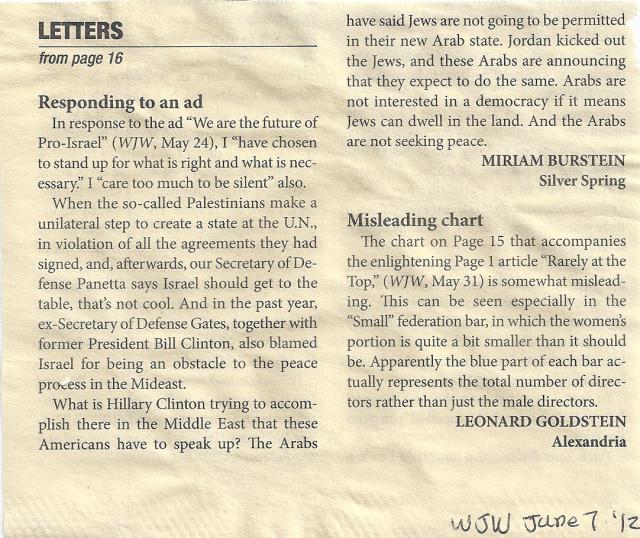 LETTERS
from page 16
Responding to an ad
In response to the ad “We are the future of
Pro-Israel” (WJW, May 24), I “have chosen
to stand up for what is right and what is nec-
essary.” I “care too much to be silent” also.
When the so-called Palestinians make a
unilateral step to create a state at the U.N.,
in violation of all the agreements they had
signed, and, afterwards, our Secretary of De-
fense Panetta says Israel should get to the
table, that’s not cool. And in the past year,
ex-Secretary of Defense Gates, together with
former President Bill Clinton, also blamed
Israel for being an obstacle to the peace
process in the Mideast.
What is Hillary Clinton trying to accom-
plish there in the Middle East that these
Americans have to speak up? The Arabs
have said Jews are not going to be permitted
in their new Arab state. Jordan kicked out
the Jews, and these Arabs are announcing
that they expect to do the same. Arabs are
not interested in a democracy if it means
Jews can dwell in the land. And the Arabs
are not seeking peace.
MIRIAM BURSTEIN
Silver Spring
Misleading chart
The chart on Page 15 that accompanies
the enlightening Page 1 article “Rarely at the
Top,” (WJW, May 31) is somewhat mislead-
ing. This can be seen especially in the
“Small” federation bar, in which the women’s
portion is quite a bit smaller than it should
be. Apparently the blue part of each bar ac-
tually represents the total number of direc-
tors rather than just the male directors.
LEONARD GOLDSTEIN
Alexandria
WJW June 7 '12